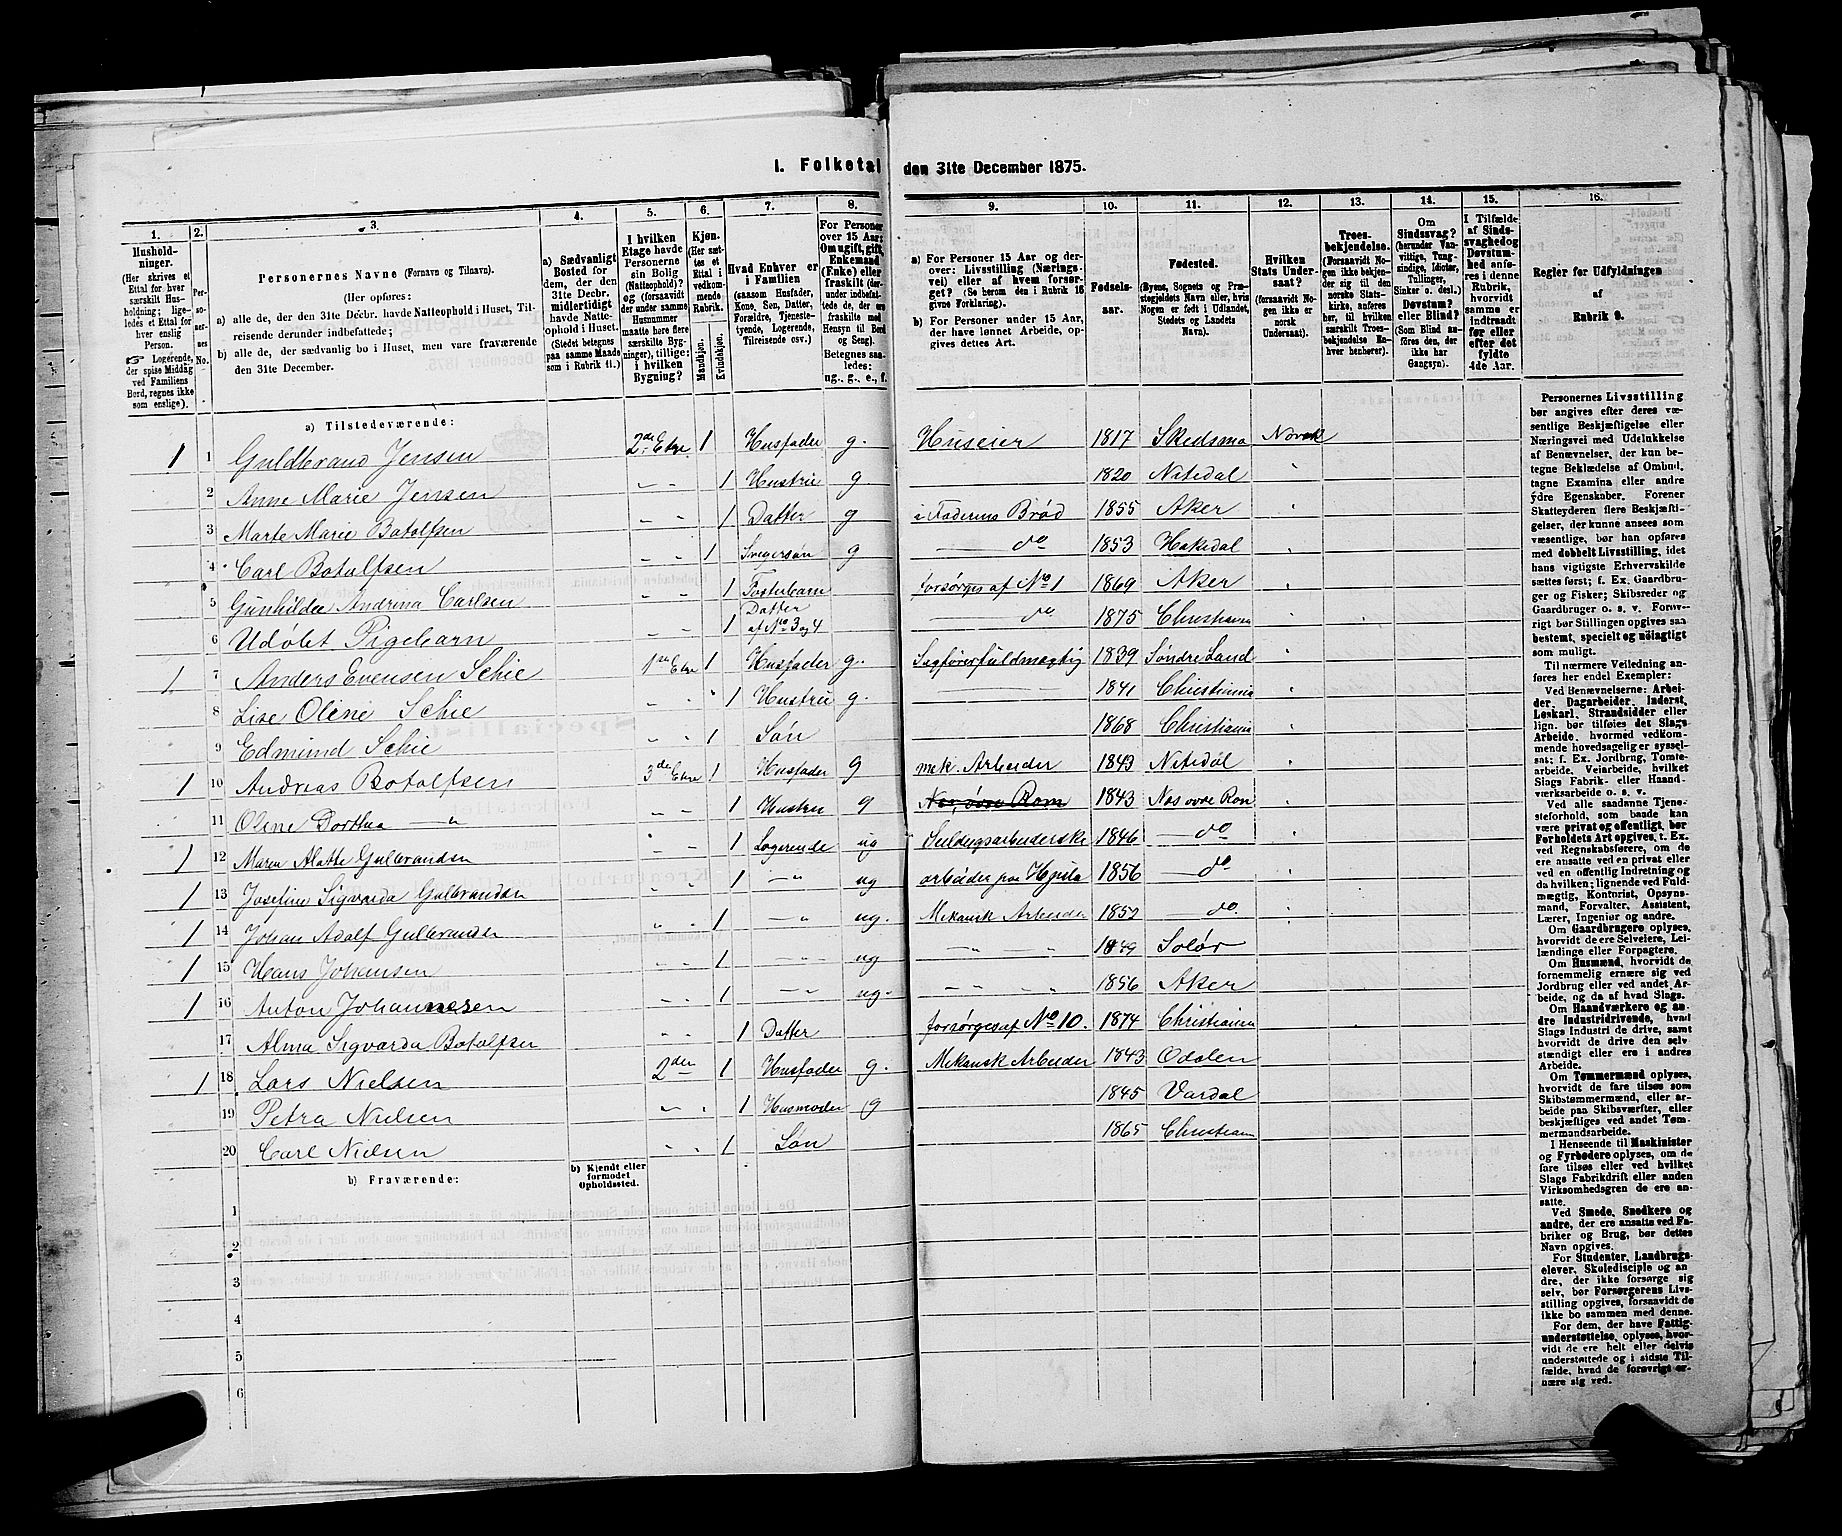 I. Folketal den 31te December 1875.
1. 2. 3. 4. 5. 6. 7. 8. 9. 10. 11. 12. 13. 14. 15. 16.
Husholdninger.
(Her skrives et Ettal for hver særskilt Husholdning; ligeledes et Ettal for hver enslig Person.
☞ Logerende, der spise Middag ved Familiens Bord, regnes ikke som enslige).
Personernes No.
Personernes Navne (Fornavn og Tilnavn).
(Her opføres:
a) alle de, der den 31te Decbr. havde Natteophold i Huset, Tilreisende derunder indbefattede;
b) alle de, der sædvanlig bo i Huset, men vare fraværende den 31te December.
a) Sædvanligt Bosted for dem, der den 31te Decbr. midlertidigt havde Natteophold i Huset.
(Stedet betegnes paa samme Maade som i Rubrik 11.)
I hvilken Etage havde Personerne sin Bolig (Natteophold)? og (forsaavidt der under samme Husnummer maatte høre flere særskilte Bygninger), tillige: i hvilken Bygning?
Kjøn.
(Her sættes et Ettal i vedkommende Rubrik.
Mandkjøn. Kvindekjøn.
Hvad Enhver er i Familien
(saasom Husfader, Kone, Søn, Datter, Forældre, Tjenestetyende, Logerende, Tilreisende osv.)
For Personer over 15 Aar: Om ugift, gift, Enkemand (Enke) eller fraskilt (derunder indbefattede de, der ere fraskilte med Hensyn til Bord og Seng.)
Betegnes saaledes: ug., g., e., f.
a) For Personer 15 Aar og derover: Livsstilling (Næringsvei) eller af hvem forsørget? (Se herom den i Rubrik 16 givne Forklaring).
b) For Personer under 15 Aar, der have lønnet Arbeide, opgives dettes Art.
Fødselsaar.
Fødested.
(Byens, Sognets og Præstegjeldets Navn eller, hvis Nogen er født i Udlandet, Stedets og Landets Navn).
Hvilken Stats Undersaat?
(forsaavidt Nogen ikke er norsk Undersaat).
Troesbekjendelse.
(Forsaavidt Nogen ikke bekjender sig til den norske Statskirke, anføres her, til hvilken særskilt Troesbekjendelse Enhver henhører).
Om Sindssvag? (herunder Vanvittige, Tungsindige, Idioter, Tullinger, Sinker o. desl.) Døvstum? eller Blind? (Som Blind anføres den, der ikke har Gangsyn).
I Tilfælde af Sindssvaghed og Døvstumhed anføres i denne Rubrik, hvorvidt samme er indtraadt før eller efter det fyldte 4de Aar.
Regler for Udfyldningen af Rubrik 9.
a) Tilstedeværende:
1 1 Guldbrand Jensen 2den Etge 1 Husfader g. Huseier 1817 Skedsmo Norsk
2 Anne Marie Jensen „ „ 1 Hustrü g 1820 Nitedal „
3 Marte Marie Botolfsen „ „ 1 Datter g i Faderens Brød 1855 Aker „
4 Carl Botolfsen „ „ 1 Svigersøn g — do 1853 Hakedal „
5 Gunhilde Andrina Carlsen „ „ 1 Fosterbarn forsørges af No 1 1869 Aker „
6 Udøbt Pigebarn „ „ 1 Datter af No 3 og 4 — do 1875 Christiania „
1 7 Anders Evensen Schie 1ste Etge 1 Husfader g. Sagførerfuldmægtig 1839 Søndre Land „
8 Lise Oline Schie „ „ 1 Hustrü g. 1841 Christiania „
9 Edmund Schie „ „ 1 Søn 1868 Christiania „
1 10 Andreas Botolfsen 3die Etge 1 Husfader g mek. Arbeider 1843 Nitedal „
11 Oline Dorthea —„— „ „ 1 Hustru g Nes, øvre Rom 1843 Nes øvre Rom „
1 12 Maren Alette Gulbrandsen „ „ 1 Logerende ug 1846 — do „
1 13 Josefine Sigvarda Gulbrandsen „ „ 1 —„— ug 1856 — do „
1 14 Johan Adolf Gulbrandsen „ „ 1 —„— ug. Mekanisk Arbeider 185 — do. „
1 15 Hans Johansen „ „ 1 —„— ug —„— „ 1849 Solør
1 16 Anton Johannesen „ „ 1 —„— ug. „ „ „ 1856 Aker
17 Alma Sigvarda Botolfsen „ „ 1 Datter forsørges af No 10. 1874 Christiania
1 18 Lars Nielsen 2den 1 Husfader g. Mekanisk Arbeider 1843 Odalen
19 Petra Nielsen „ „ 1 Husmoder g 1845 Vardal
20 Carl Nielsen „ „ 1 Søn 1865 Christiania
b) Fraværende:
b) Kjendt eller formodet Opholdssted.
1
2
3
4
5
6
Personernes Livsstilling bør angives efter deres væsentlige Beskjæftigelse eller Næringsvei med Udelukkelse af Benævnelser, der kun betegne Beklædelse af Ombud, tagne Examina eller andre ydre Egenskaber. Forener Skatteyderen flere Beskjæftigelser, der kunne ansees som væsentlige, bør han opføres med dobbelt Livsstilling, idet hans vigtigste Erhvervskilde sættes først; f. Ex. Gaardbruger og Fisker; Skibsreder og Gaardbruger o. s. v. Forøvrigt bør Stillingen opgives saa bestemt, specielt og nöiagtigt som muligt.
Til nærmere Veiledning anføres her endel Exempler:
Ved Benævnelserne: Arbeider, Dagarbeider, Inderst, Løskarl, Strandsidder eller lign. bør tilføies det Slags Arbeide, hvormed vedkommende hovedsagelig er sysselsat; f. Ex. Jordbrug, Tomtearbeide, Veiarbeide, hvilket Slags Fabrik- eller Haandværksarbeide o. s. v.
Ved alle saadanne Tjenesteforhold, som baade kan være privat og offentligt, bør Forholdets Art opgives, t. Ex. ved Regnskabsførere, om de ere ansatte ved en privat eller ved en offentlig Indretning og da hvilken; lignende ved Fuldmægtig, Kontorist, Opsynsmand, Forvalter, Assistent, Lærer, Ingeniør og andre.
Om Gaardbrugere oplyses, hvorvidt de ere Selveiere, Leilændinge eller Forpagtere.
Om Husmænd, hvorvidt de fornemmelig ernære sig ved Jordbrug eller ved andet Arbeide, og da af hvad Slags.
Om Haandværkere og andre Industridrivende, hvad Slags Industri de drive, samt hvorvidt de drive den selvstændigt eller ere i andres Arbeide.
Om Tømmermænd oplyses, hvorvidt de fare tilsøs som Skibstømmermænd, eller arbeide paa Skibsværfter, eller beskjæftiges ved andet Tømmermandsarbeide.
I Henseende til Maskinister og Fyrbødere oplyses, om de fare tilsøs eller ved hvilket Slags Fabrikdrift eller anden Virksomhedsgren de ere ansatte.
Ved Smede, Snedkere og andre, der ere ansatte ved Fabriker og Brug, bør dettes Navn opgives.
For Studenter, Landbrugselever, Skoledisciple og andre, der ikke forsørge sig selv, bør Forsørgerens Livsstilling opgives, forsaavidt de ikke bo sammen med denne.
For dem, der have Fattigunderstøttelse, oplyses, hvorvidt de ere helt eller delvis understøttede og i sidste Tilfælde, hvad de forøvrigt ernære sig ved.